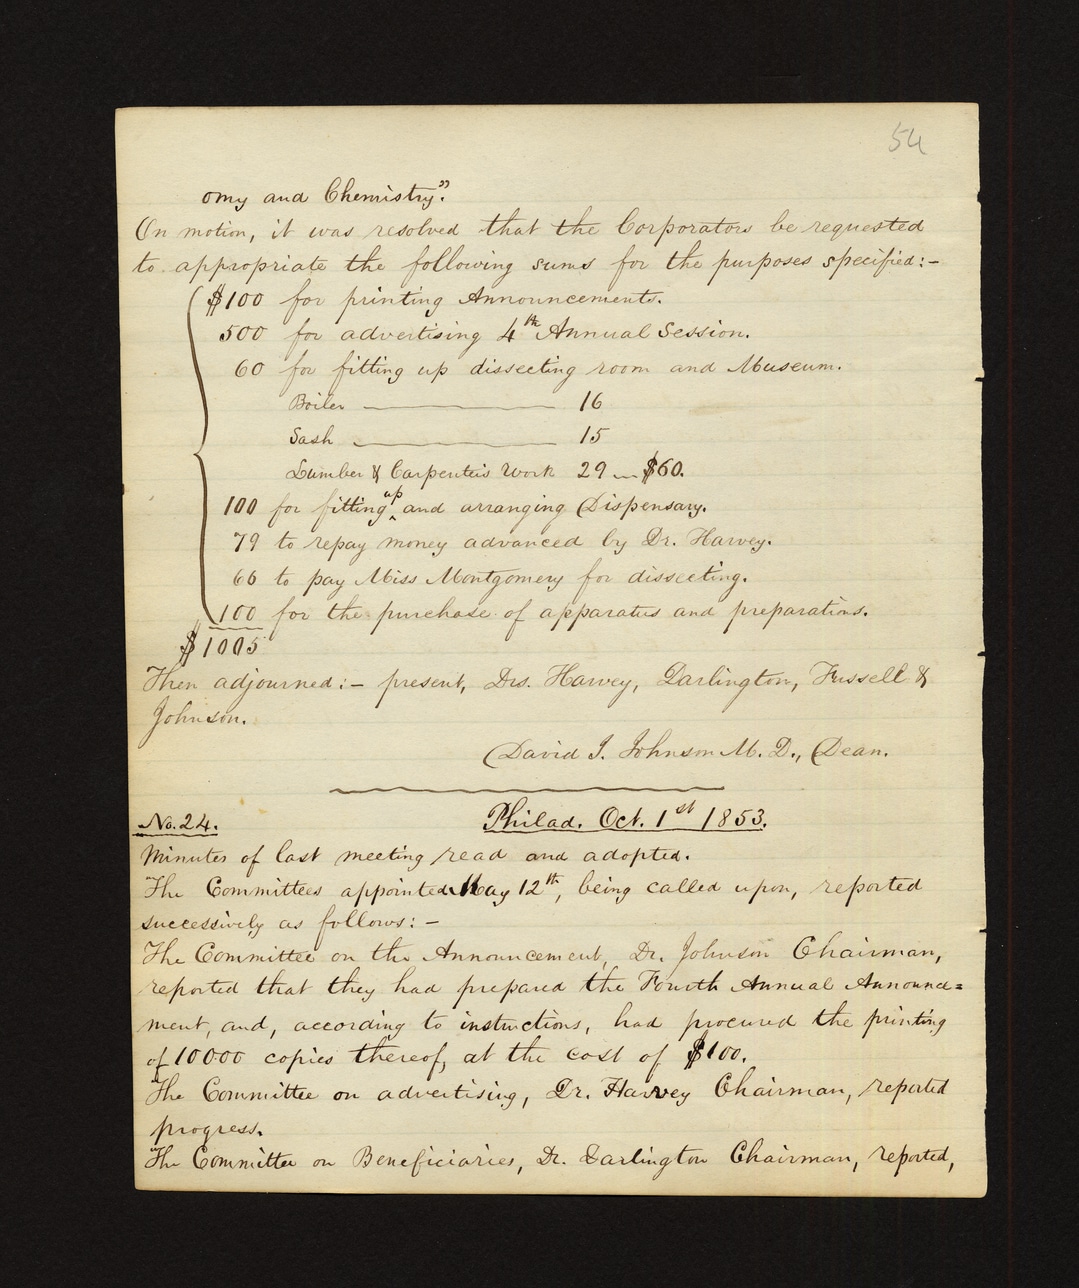 54
omy and Chemistry."
On motion, it was resolved that the Corporators be requested
to appropriate the following sums for the purposes specified:-
$100 for printing Announcements.
500 for advertising 4th Annual Session.
60 for fitting up dissecting room and Museum.
Boiler — 16
Sash — 15
Lumber & Carpenters work 29 — $60.
100 for fitting up and arranging Dispensary.
79 to repay money advanced by Dr. Harvey.
66 to pay Miss Montgomery for dissecting.
100 for the purchase of apparatus and preparations.
$1005
Then adjourned:- present, Drs. Harvey, Darlington, Fussell &
Johnson.
David J. Johnson M.D., Dean.
No. 24. Philad. Oct. 1st 1853.
Minutes of last meeting read and adopted.
The Committees appointed May 12th, being called upon, reported
successively as follows:-
The Committee on the Announcement, Dr. Johnson Chairman,
reported that they had prepared the Fourth Annual Announce=
ment, and, according to instructions, had procured the printing
of 10000 copies thereof, at the cost of $100.
The Committee on advertising, Dr. Harvey Chairman, reported
progress.
The Committee on Beneficiaries, Dr. Darlington Chairman, reported,